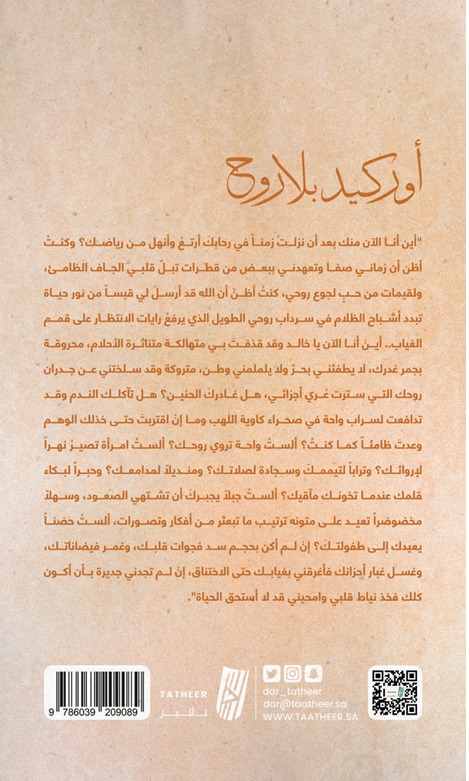 أوركيد بلا روح
"أين أنا الآن منك بعد أن نزلتُ زمناً في رحابكَ أرتعُ وأنهل من رياضك؟ وكنتُ
أظن أن زماني صفا وتعهدني ببعض من قطرات تبلّ قلبي الجاف الظامئ،
ولقيمات من حبٍ لجوع روحي، كنتُ أظنّ أن الله قد أرسلَ لي قبساً من نور حياة
تبدد أشباح الظلام في سرداب روحي الطويل الذي يرفعُ رايات الانتظار على قمم
الغياب.. أينَ أنا الآن يا خالد وقد قذفتَ بي متهالكة متناثرة الأحلام، محروقة
بجمر غدرك، لا يطفئني بحرٌ ولا يلملمني وطن، متروكة وقد سلختني عن جدران
روحك التي سترت عُري أجزائي، هل غادركَ الحنين؟ هل تآكلك الندم وقد
تدافعت لسراب واحة في صحراء كاوية اللهب وما إنْ اقتربتَ حتى خذلك الوهم
وعدتَ ظامئاً كما كنتُ؟ ألستُ واحة تروي روحك؟ ألستُ امرأة تصيرُ نهراً
لإروائك؟ وتراباً لتيممكَ وسجادة لصلاتك؟ ومنديلاً لمدامعك؟ وحبراً لبكاء
قلمك عندما تخونك مآقيك؟ ألستُ جبلاً يجبركَ أن تشتهي الصعود، وسهلاً
مخضوضراً تعيد على متونه ترتيب ما تبعثر من أفكار وتصورات، ألستُ حضناً
يعيدك إلى طفولتكَ؟ إنْ لم أكن بحجم سد فجوات قلبك، وغمر فيضاناتك،
وغسل غبار أحزانك فأغرقني بغيابك حتى الاختناق، إنْ لم تجدني جديرة بأن أكون
كلك فخذ نياط قلبي وامحيني قد لا أستحق الحياة".
9 786039 209089
TATHEER
تأثير
dar_tatheer
dar@taatheer.sa
WWW.TAATHEER.SA